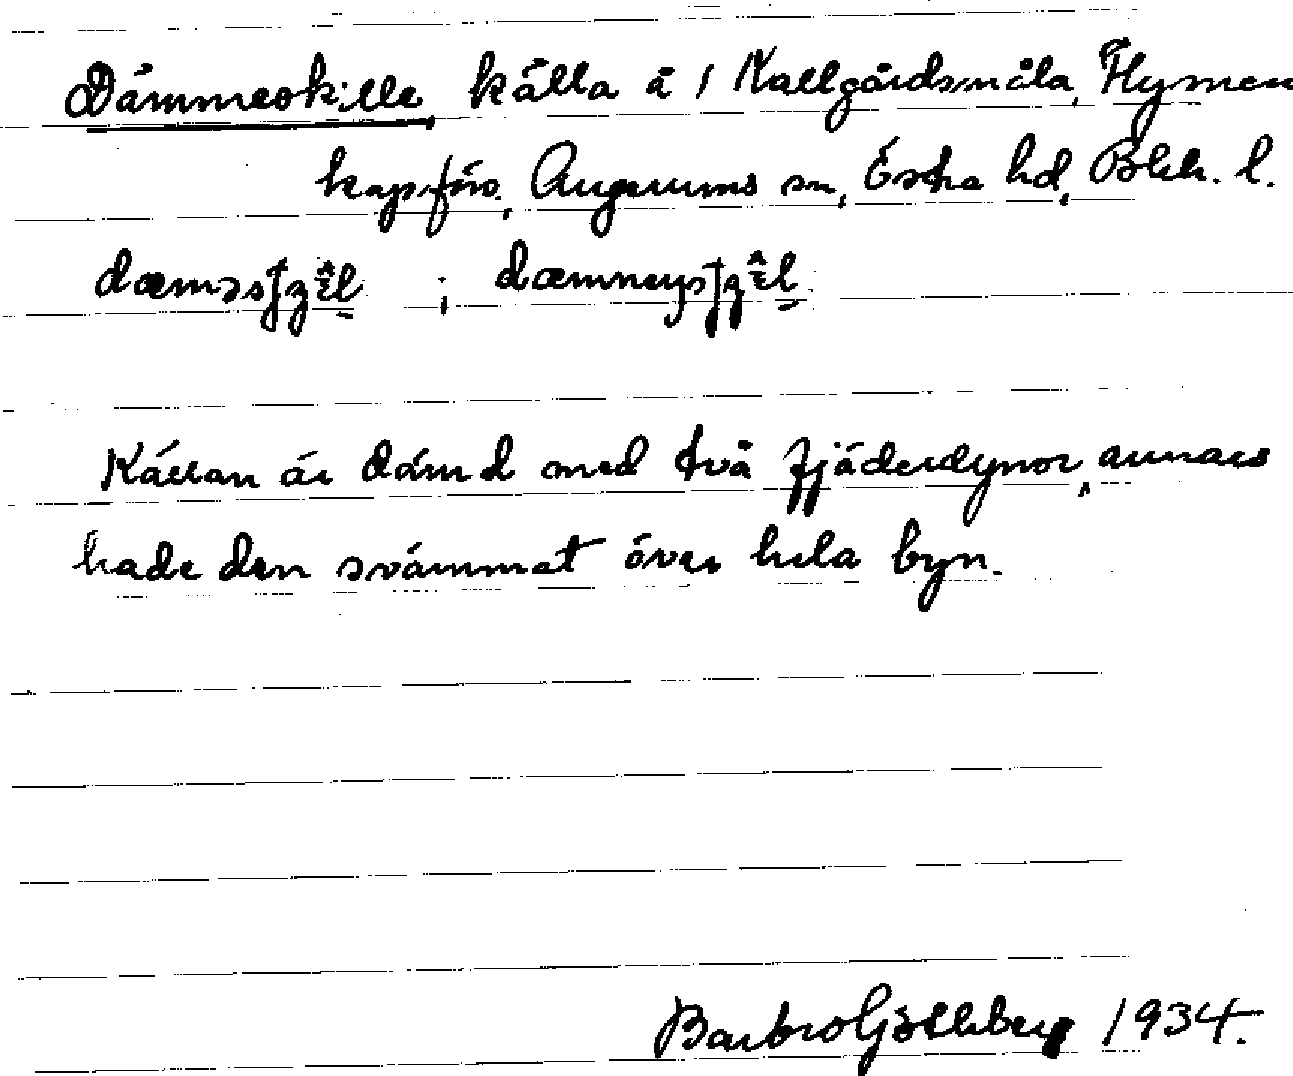 Dämmeskille, källa å 1 Kallgårdsmåla, Flymen
kapsförs., Augerums sn, Östra hd, Blek. l.
Källan är dämd med två fjäderdynor, annars
hade den svämmat över hela byn.
Barbro Götlberg 1934.